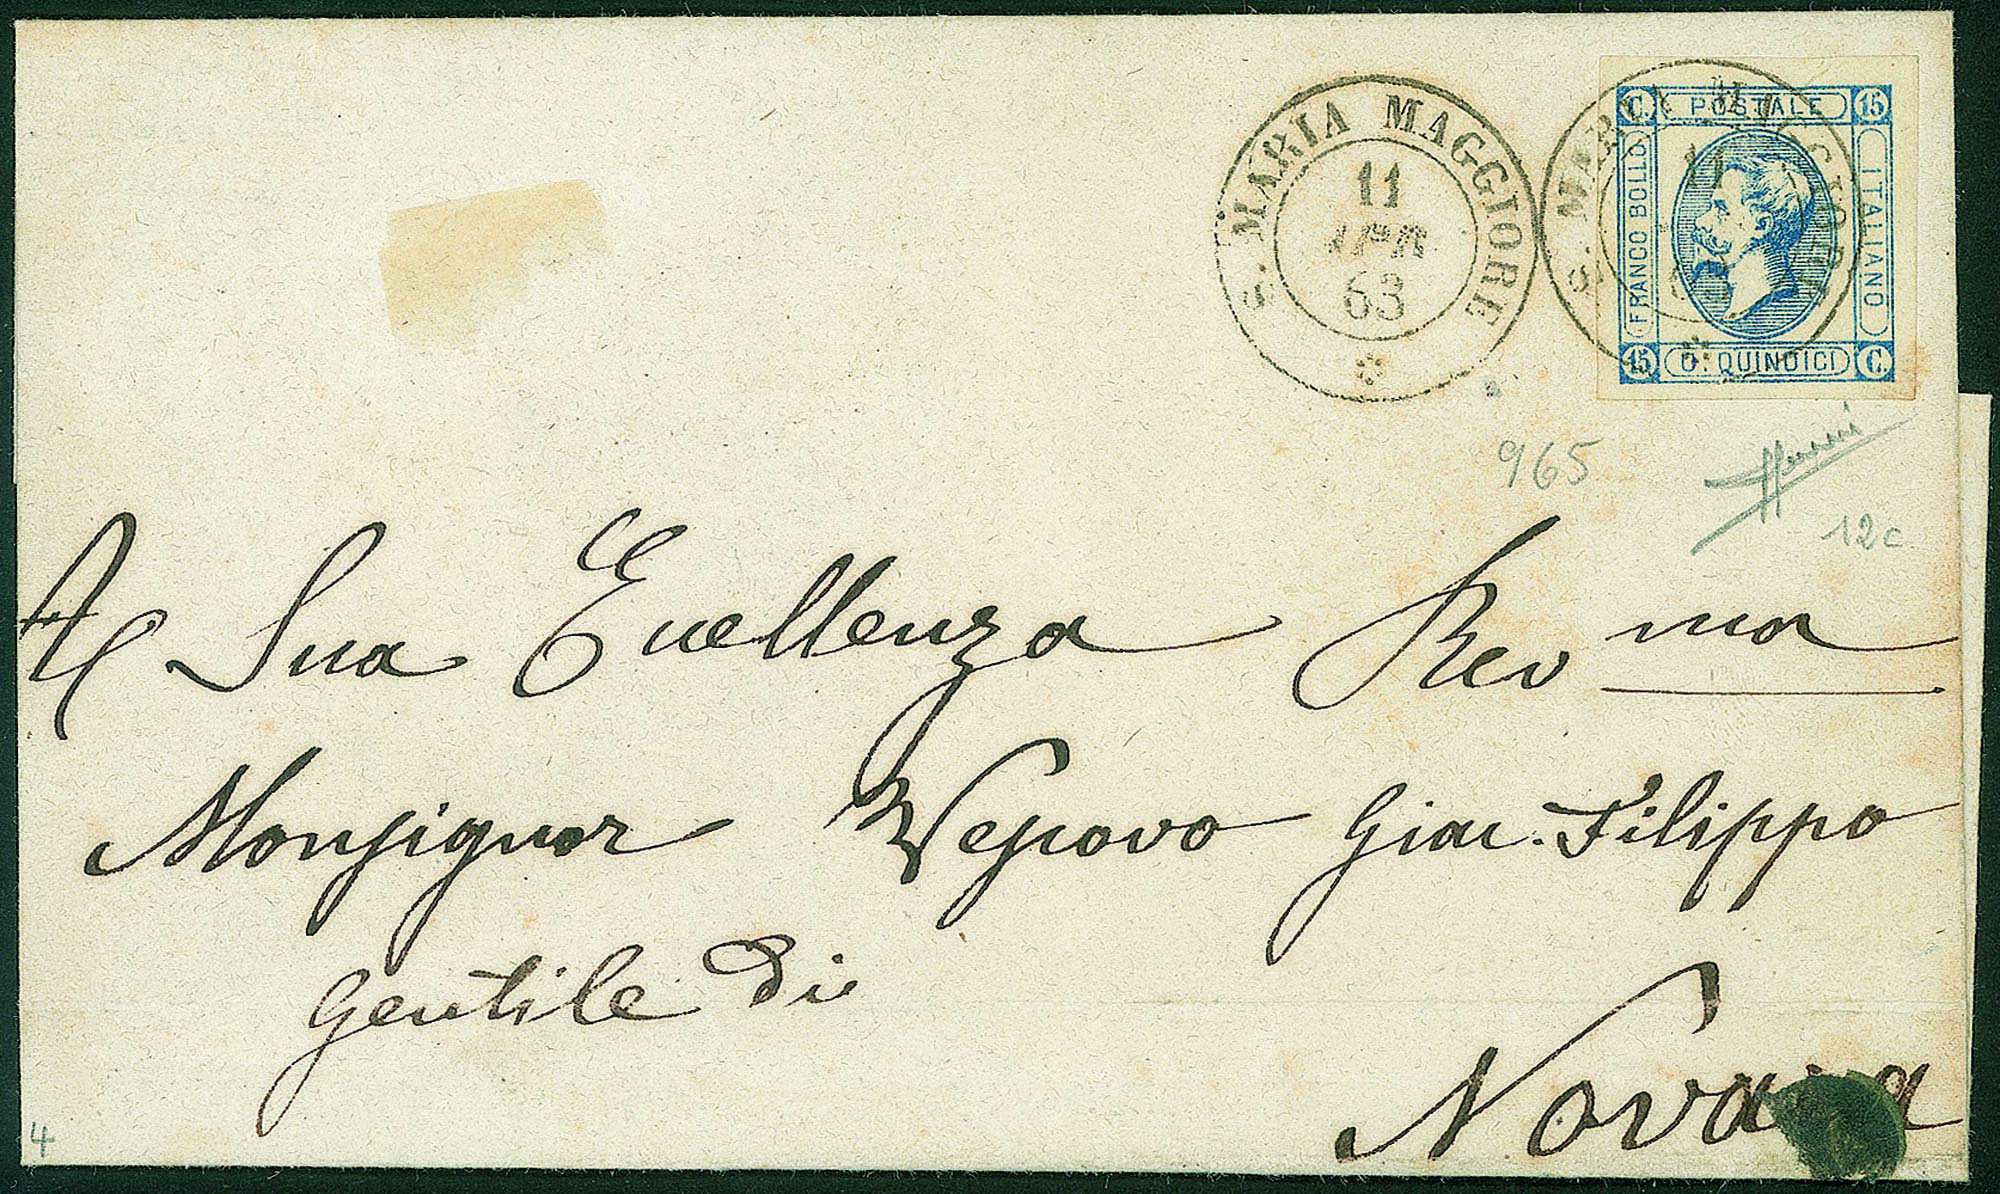 S. MARIA MAGGIORE
11
APR
63
C. POSTALE 15
FRANCO BOLLO
ITALIANO
15 C. QUINDICI C.
S. MARIA MAGGIORE
11
965
12c
A Sua Eccellenza Rev ma
Monsignor Vescovo Giac. Filippo
Gentile di
Novara
4